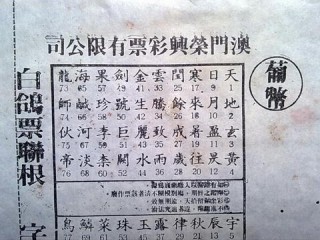 澳門榮興彩票有限公司
葡幣
白鴿票聯根 字
天 日 寒 閏 雲 金 劍 果 海 龍
1 9 17 25 33 41 49 57 65 73
地 月 來 餘 騰 生 號 珍 鹹 師
2 10 18 26 34 42 50 58 66 74
玄 盈 暑 成 致 麗 巨 李 河
3 11 19 27 35 43 51 59 67 75
黃 昃 往 歲 雨 水 闕 柰 淡 帝
4 12 20 28 36 44 52 60 68 76
宇 辰 秋 律 露 玉 珠 菜 鱗 鳥
5 13 21 29 37 45 53 61 69 77